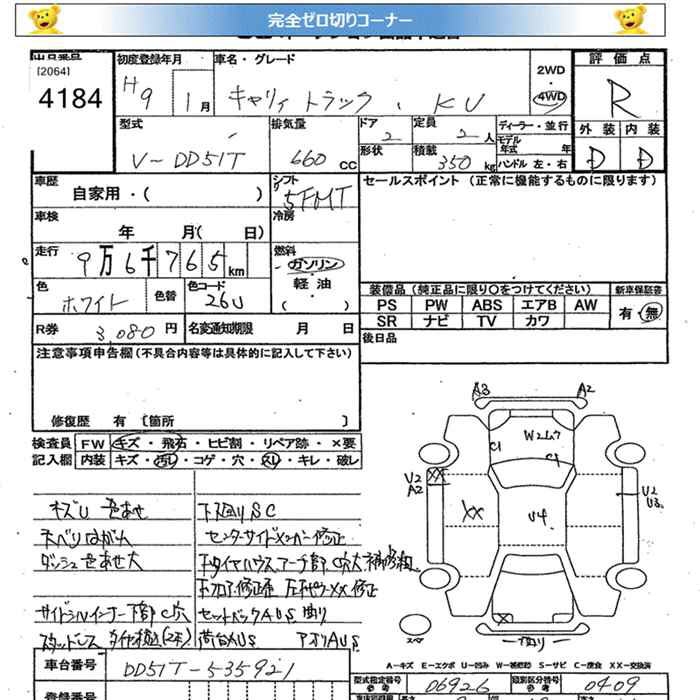 完全ゼロ切りコーナー
[2064]
4184
初度登録年月
H9 1月
車名・グレード
キャリィ トラック . KU
2WD
・
4WD
評価点
R
外装 内装
D D
型式
V-DD51T
排気量
660 CC
ドア
2
形状
定員
2 人
積載
350 kg
ディーラー・並行
モデル年式 年
ハンドル 左・右
車歴
自家用・( )
シフト
5FMT
セールスポイント (正常に機能するものに限ります)
車検
年 月( 日)
冷房
走行
9万6千765km
燃料
ガソリン・
軽油・
( )
色
ホワイト
色替
色コード
26U
装備品 (純正品に限り〇をつけてください)
新車保証書
PS PW ABS エアB AW
SR ナビ TV カワ
有・無
R券
3,080 円
名変通知期限 月 日
後日品
注意事項申告欄 (不具合内容等は具体的に記入して下さい)
修復歴 有 [箇所 ]
検査員記入欄
FW キズ・飛石・ヒビ割・リペア跡・×要
内装 キズ・汚れ・コゲ・穴・スレ・キレ・破レ
キズU 色あせ
天ベリはがれ
ダッシュ色あせ大
サイドシルインナー下部C穴
スタッドレス
下回りSC
センターサイドメンバー修正
セットバックAUS 曲り
荷台AUS アオリAUS
A3
A2
C1
W2
C1
U2
A2
XX
XX
U4
U2
U3
X
スペア
曲り
A-キズ E-エクボ U-凹み W-補修跡 S-サビ C-腐食 XX-交換済
車台番号
DD51T-535921
登録番号
型式指定番号
参考
06926
類別区分番号
参考
0409